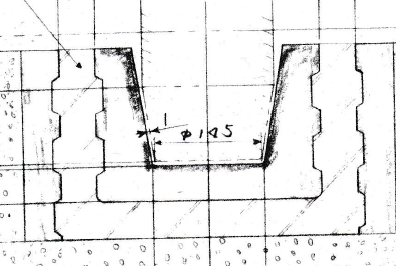 1
φ145